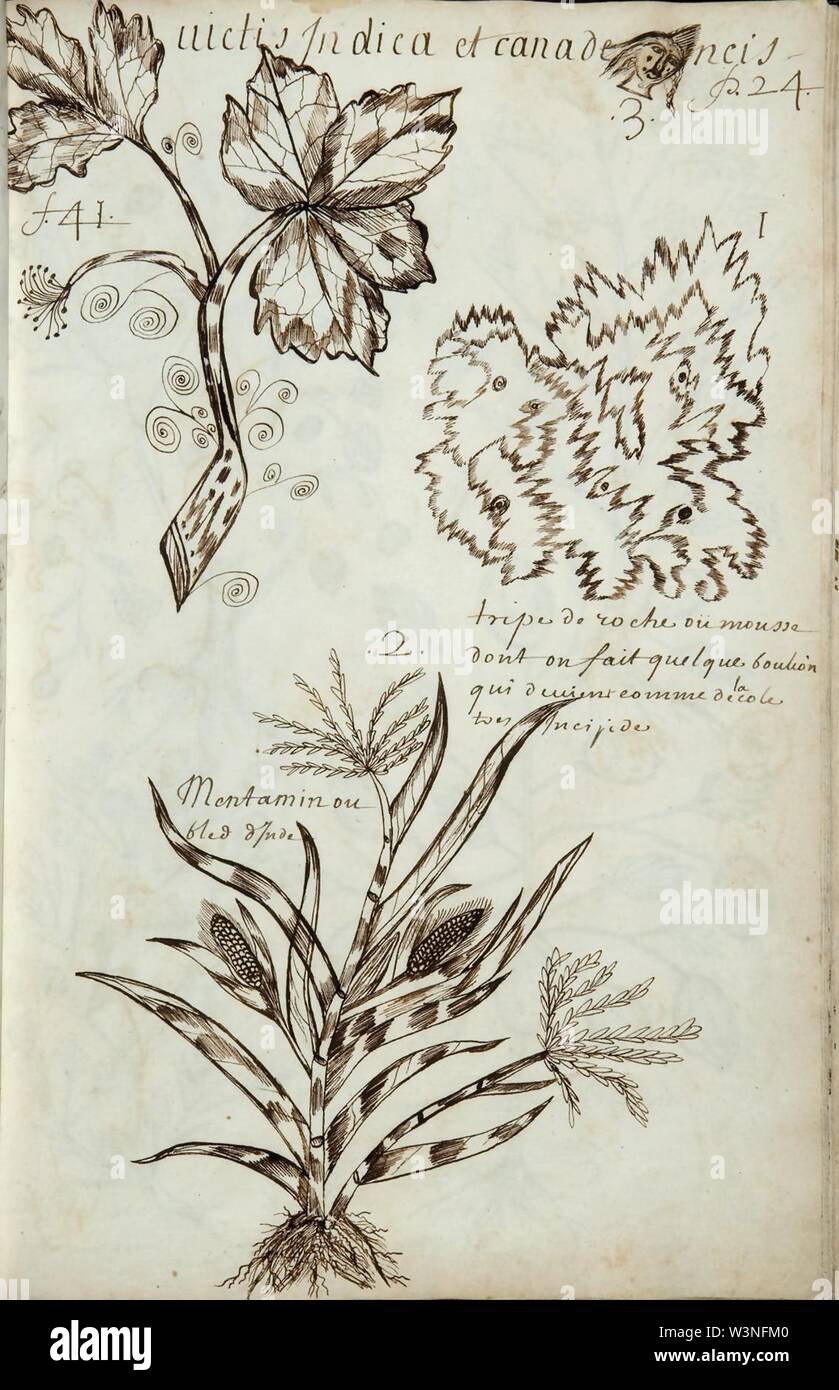 uictis Indica et canadencis
p. 24.
.3.
f. 41.
1
tripe de roche ou mousse
dont on fait quelque boulion
qui deuient comme de la cole
tres Incipide
.2.
Mentamin ou
bled d'Inde
alamy
Image ID: W3NFM0
www.alamy.com